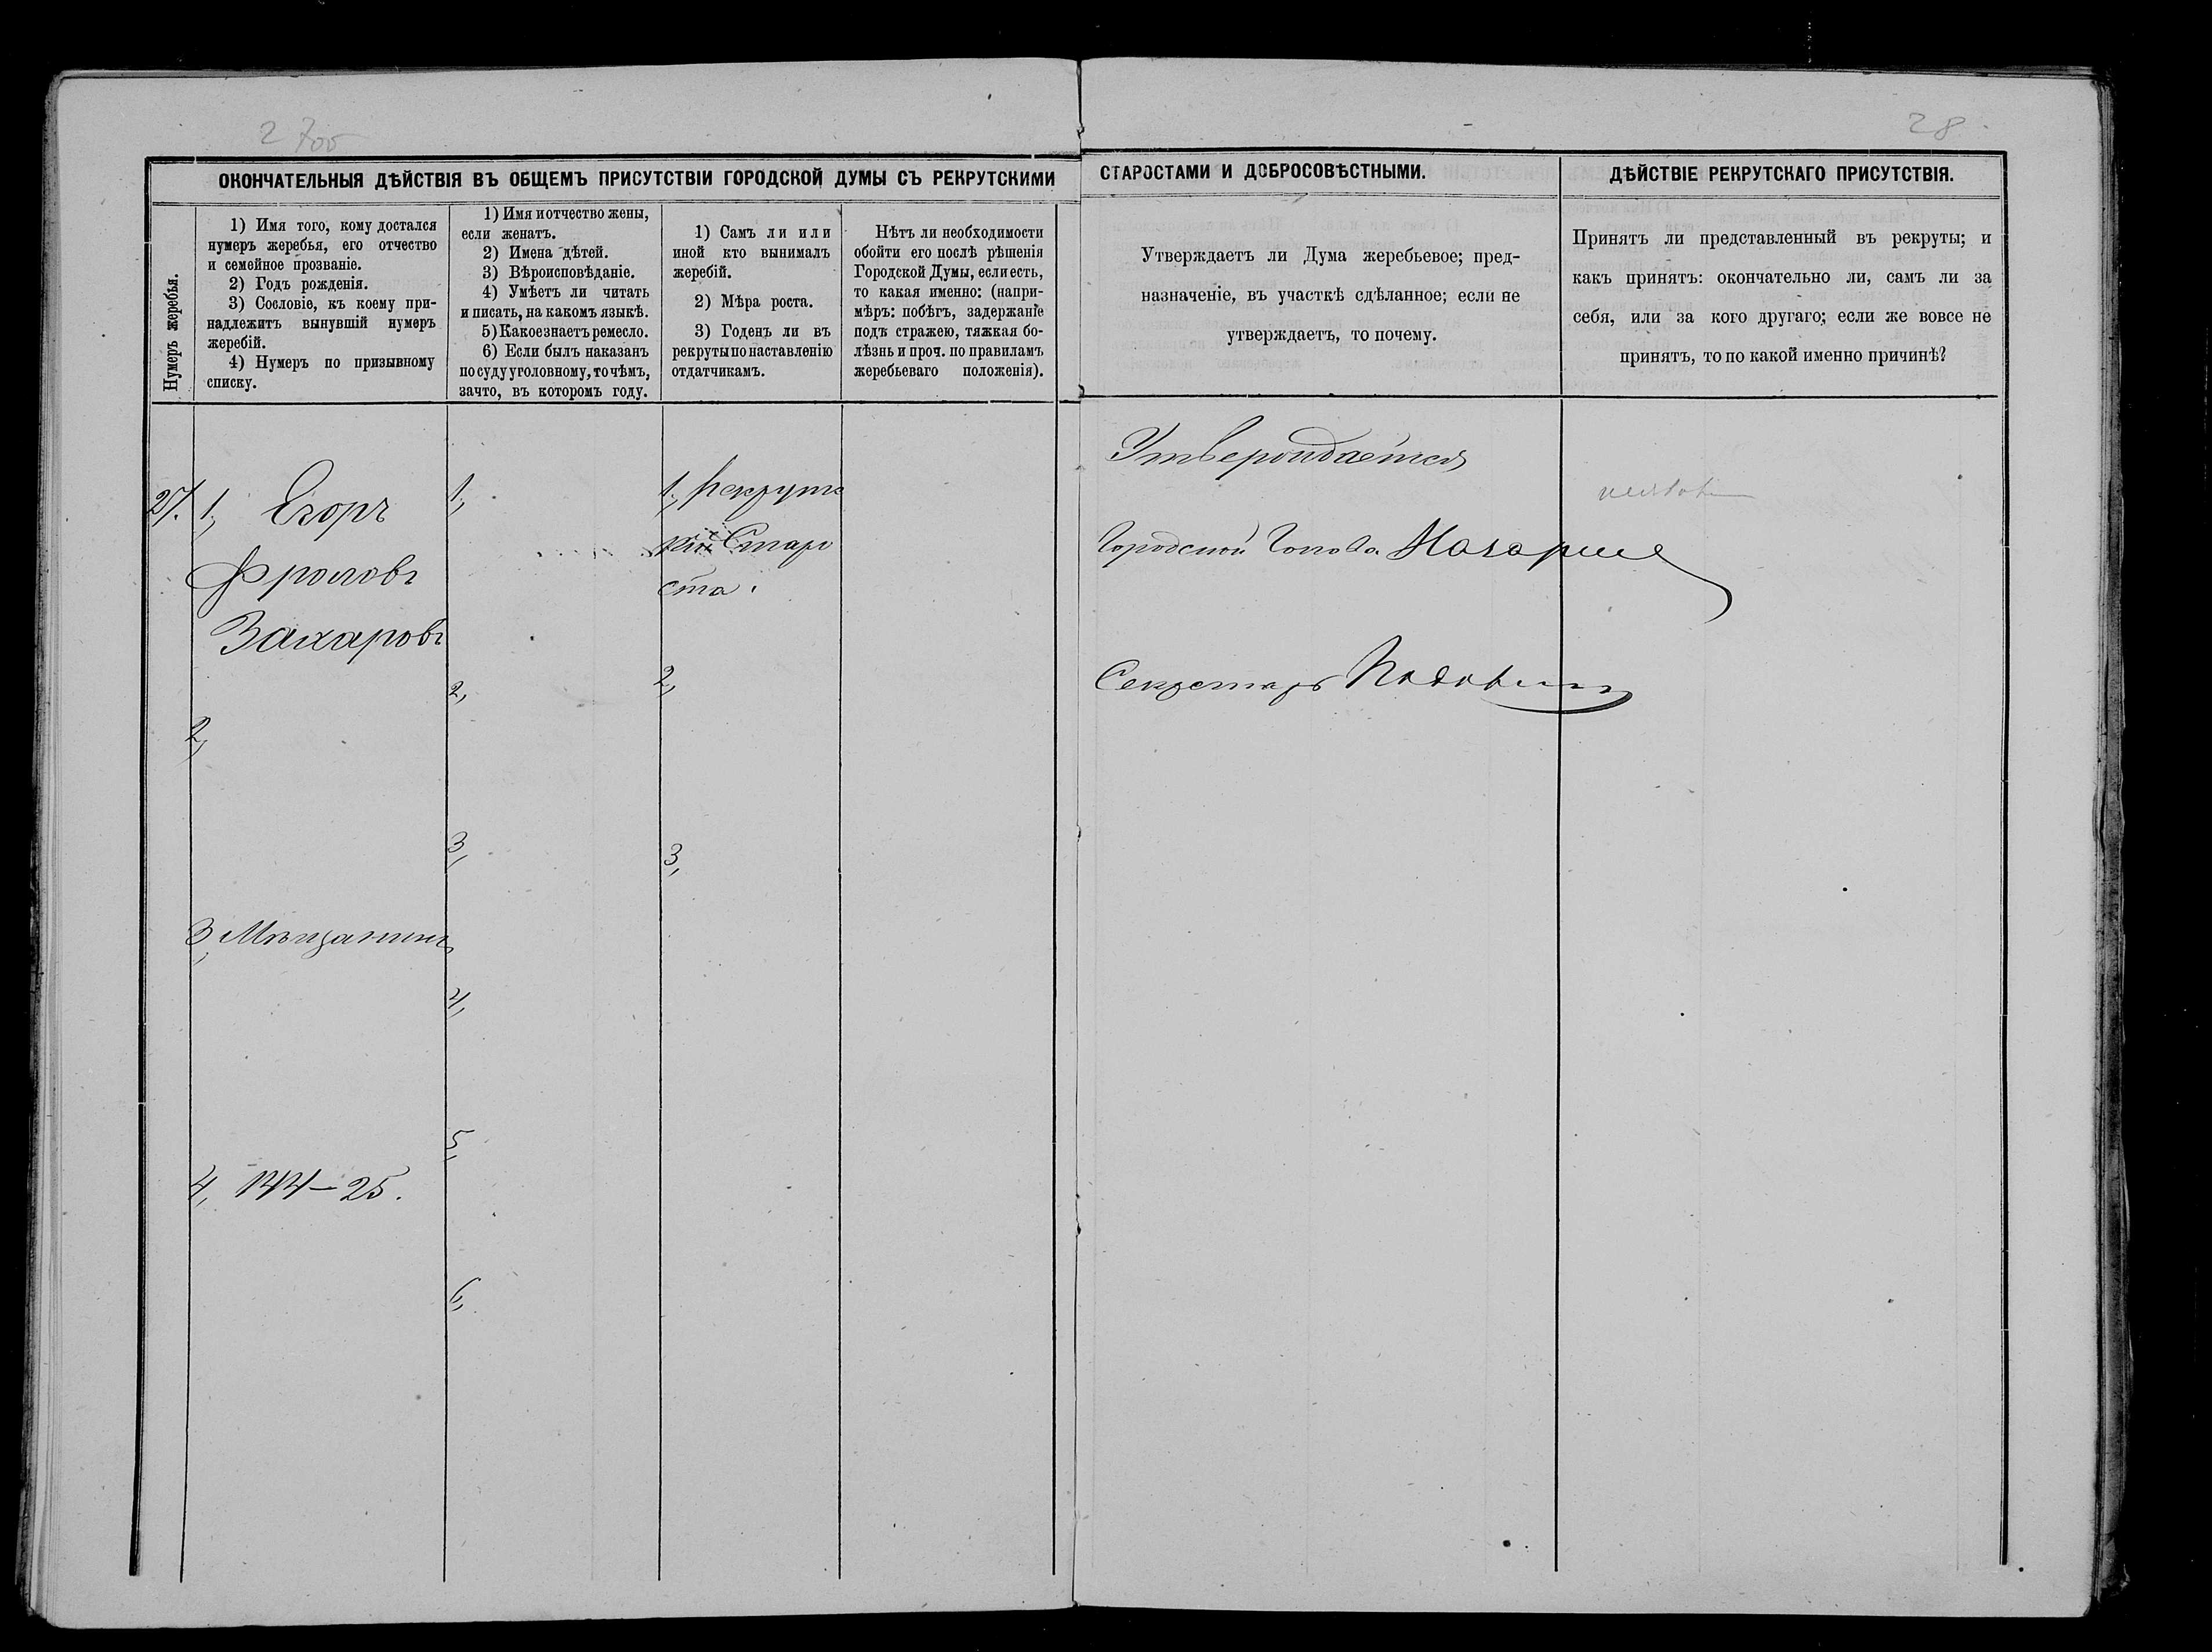 28
ОКОНЧАТЕЛЬНЫЯ ДѢЙСТВІЯ ВЪ ОБЩЕМЪ ПРИСУТСТВІИ ГОРОДСКОЙ ДУМЫ СЪ РЕКРУТСКИМИ
СТАРОСТАМИ И ДОБРОСОВѢСТНЫМИ.
ДѢЙСТВІЕ РЕКРУТСКАГО ПРИСУТСТВІЯ.
Нумеръ жеребья.
1) Имя того, кому достался
нумеръ жеребья, его отчество
и семейное прозваніе.
2) Годъ рожденія.
3) Сословіе, къ коему при-
надлежитъ вынувшій нумеръ
жеребій.
4) Нумеръ по призывному
списку.
1) Имя и отчество жены,
если женатъ.
2) Имена дѣтей.
3) Вѣроисповѣданіе.
4) Умѣетъ ли читать
и писать, на какомъ языкѣ.
5) Какое знаетъ ремесло.
6) Если былъ наказанъ
по суду уголовному, то чѣмъ,
зачто, въ которомъ году.
1) Самъ ли или
иной кто вынималъ
жеребій.
2) Мѣра роста.
3) Годенъ ли въ
рекруты по наставленію
отдатчикамъ.
Нѣтъ ли необходимости
обойти его послѣ рѣшенія
Городской Думы, если есть,
то какая именно: (напри-
мѣръ: побѣгъ, задержаніе
подъ стражею, тяжкая бо-
лѣзнь и проч. по правиламъ
жеребьеваго положенія).
Утверждаетъ ли Дума жеребьевое; пред-
назначеніе, въ участкѣ сдѣланное; если не
утверждаетъ, то почему.
Принятъ ли представленный въ рекруты; и
какъ принятъ: окончательно ли, самъ ли за
себя, или за кого другаго; если же вовсе не
принятъ, то по какой именно причинѣ?
27. 1, Егоръ
Фроловъ
Захаровъ
2,
3, Мѣщанинъ
4, 144–25.
1,
2,
3,
4,
5,
6,
1, Рекрутс
кій Старо
ста.
2,
3,
Утверждается
Городской Голова
Секретарь